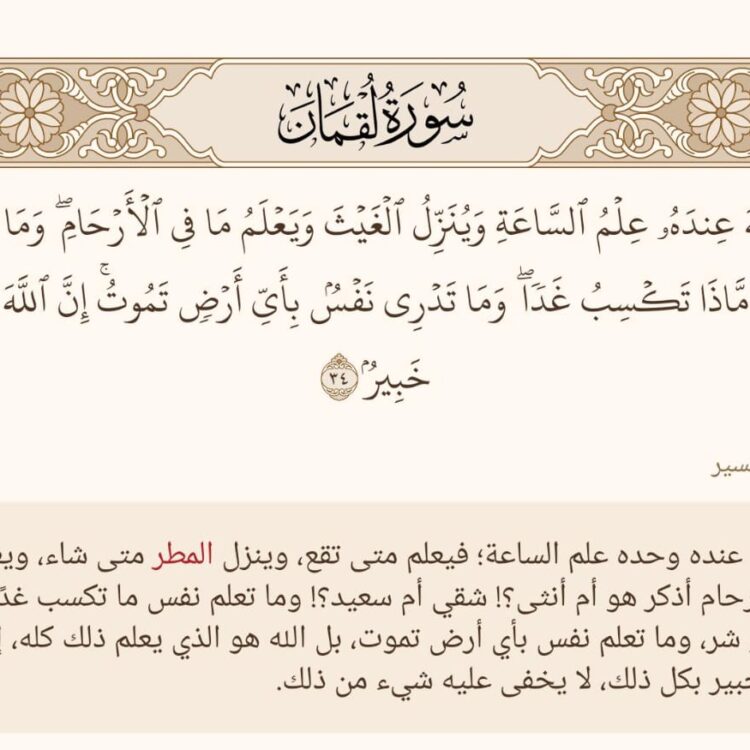 سُورَةُ لُقۡمَانَ
عِندَهُۥ عِلۡمُ ٱلسَّاعَةِ وَيُنَزِّلُ ٱلۡغَيۡثَ وَيَعۡلَمُ مَا فِي ٱلۡأَرۡحَامِۖ وَمَا
مَّاذَا تَكۡسِبُ غَدٗاۖ وَمَا تَدۡرِي نَفۡسُۢ بِأَيِّ أَرۡضٖ تَمُوتُۚ إِنَّ ٱللَّهَ
خَبِيرُۢ ٣٤
عنده وحده علم الساعة؛ فيعلم متى تقع، وينزل المطر متى شاء،
أذكر هو أم أنثى؟! شقي أم سعيد؟! وما تعلم نفس ما تكسب
شر، وما تعلم نفس بأي أرض تموت، بل الله هو الذي يعلم ذلك كله،
بكل ذلك، لا يخفى عليه شيء من ذلك.